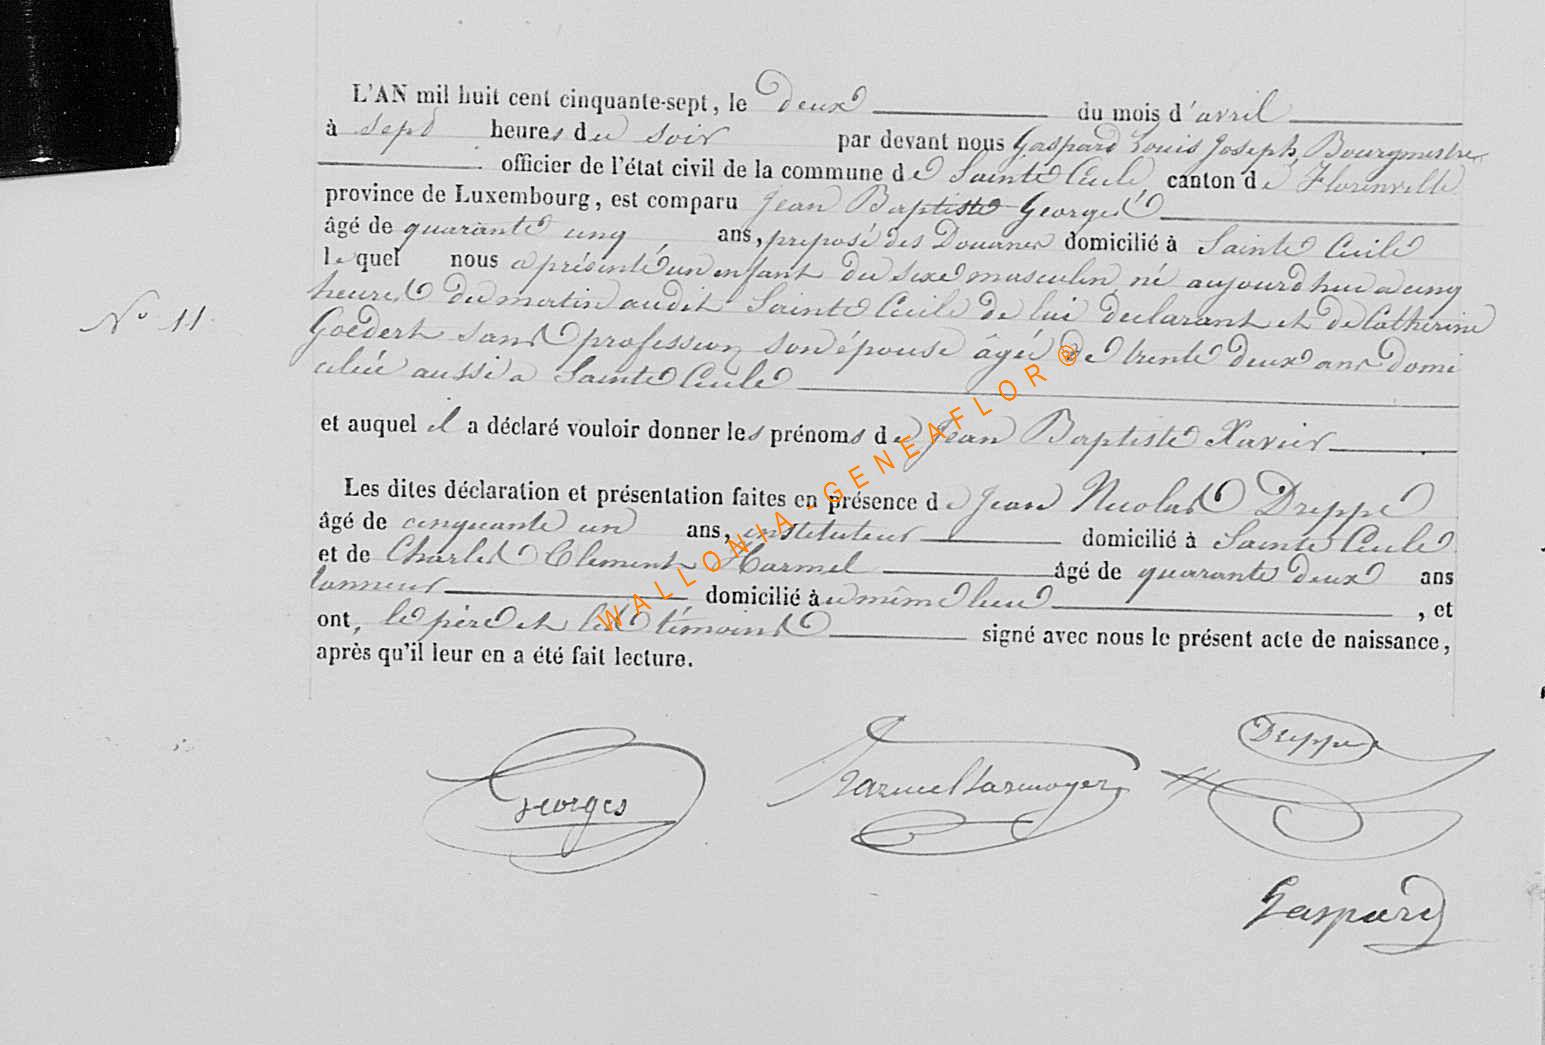 L'AN mil huit cent cinquante-sept, le deux du mois d'avril
à sept heures du soir par devant nous Gaspard Louis Joseph, Bourgmestre
officier de l'état civil de la commune de Sainte Cécile, canton de Florenville
province de Luxembourg, est comparu Jean Baptiste Georges
âgé de quarante cinq ans, préposé des Douanes domicilié à Sainte Cécile
lequel nous a présenté un enfant du sexe masculin né aujourd'hui a cinq
heures du matin audit Sainte Cécile de lui déclarant et de Catherine
Goedert sans profession son épouse âgée de trente deux ans domi
ciliée aussi a Sainte Cécile
N° 11
et auquel il a déclaré vouloir donner les prénoms de Jean Baptiste Xavier
Les dites déclaration et présentation faites en présence de Jean Nicolas Dreppe
âgé de cinquante un ans, instituteur domicilié à Sainte Cécile
et de Charles Clement Harmel âgé de quarante deux ans
tanneur domicilié à u même lieu , et
ont, le père et les témoins signé avec nous le présent acte de naissance,
après qu'il leur en a été fait lecture.
Georges
Harmel
Dreppe
Gaspard
WALLONIA-GENEAFLOR®